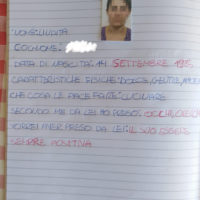 COGNOME:
DATA DI NASCITA: 14 SETTEMBRE 1975
CARATTERISTICHE FISICHE: DOLCE, GENTILE,
CHE COSA LE PIACE FARE: CUCINARE
SECONDO ME DA LEI HO PRESO: OCCHI,
VORREI AVER PRESO DA LEI: IL SUO ESSERE
SEMPRE POSITIVA